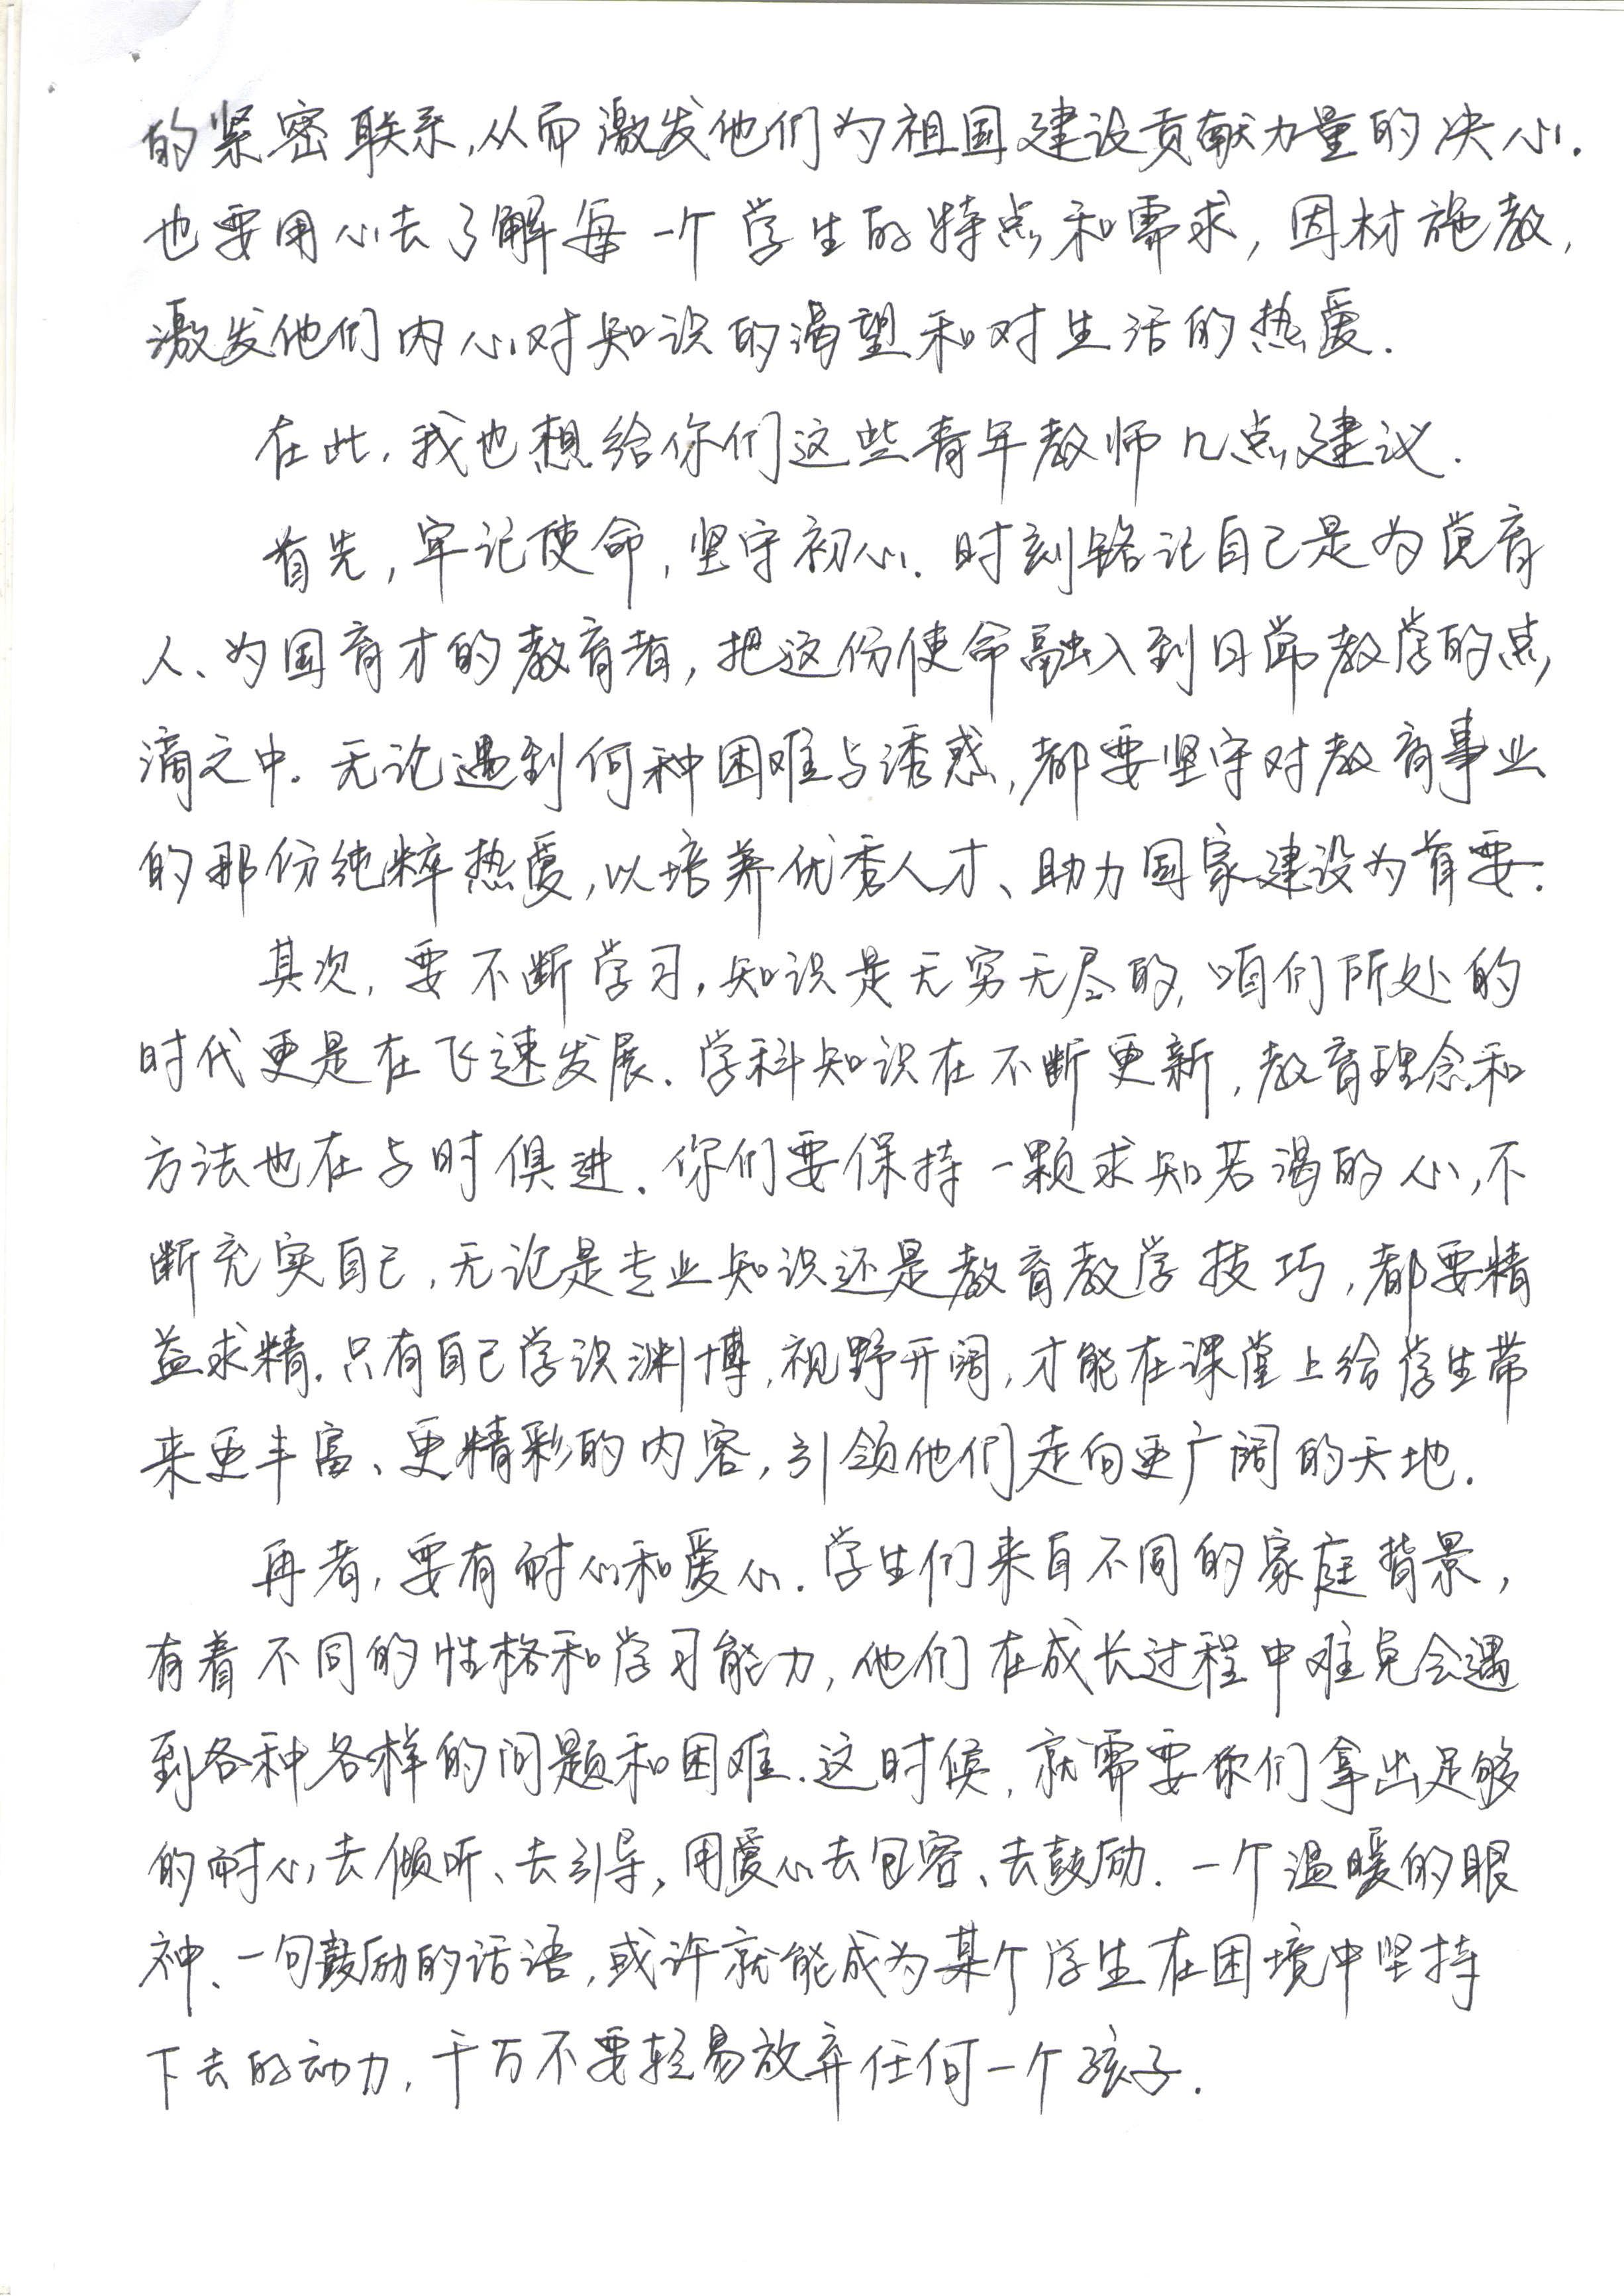 的紧密联系,从而激发他们为祖国建设贡献力量的决心.
也要用心去了解每一个学生的特点和需求,因材施教,
激发他们内心对知识的渴望和对生活的热爱.
在此,我也想给你们这些青年教师几点建议.
首先,牢记使命,坚守初心.时刻铭记自己是为党育
人、为国育才的教育者,把这份使命融入到日常教学的点
滴之中.无论遇到何种困难与诱惑,都要坚守对教育事业
的那份纯粹热爱,以培养优秀人才、助力国家建设为首要.
其次,要不断学习,知识是无穷无尽的,咱们所处的
时代更是在飞速发展.学科知识在不断更新,教育理念和
方法也在与时俱进.你们要保持一颗求知若渴的心,不
断充实自己,无论是专业知识还是教育教学技巧,都要精
益求精.只有自己学识渊博,视野开阔,才能在课堂上给学生带
来更丰富、更精彩的内容,引领他们走向更广阔的天地.
再者,要有耐心和爱心.学生们来自不同的家庭背景,
有着不同的性格和学习能力,他们在成长过程中难免会遇
到各种各样的问题和困难.这时候,就需要你们拿出足够
的耐心去倾听、去引导,用爱心去包容、去鼓励.一个温暖的眼
神、一句鼓励的话语,或许就能成为某个学生在困境中坚持
下去的动力,千万不要轻易放弃任何一个孩子.